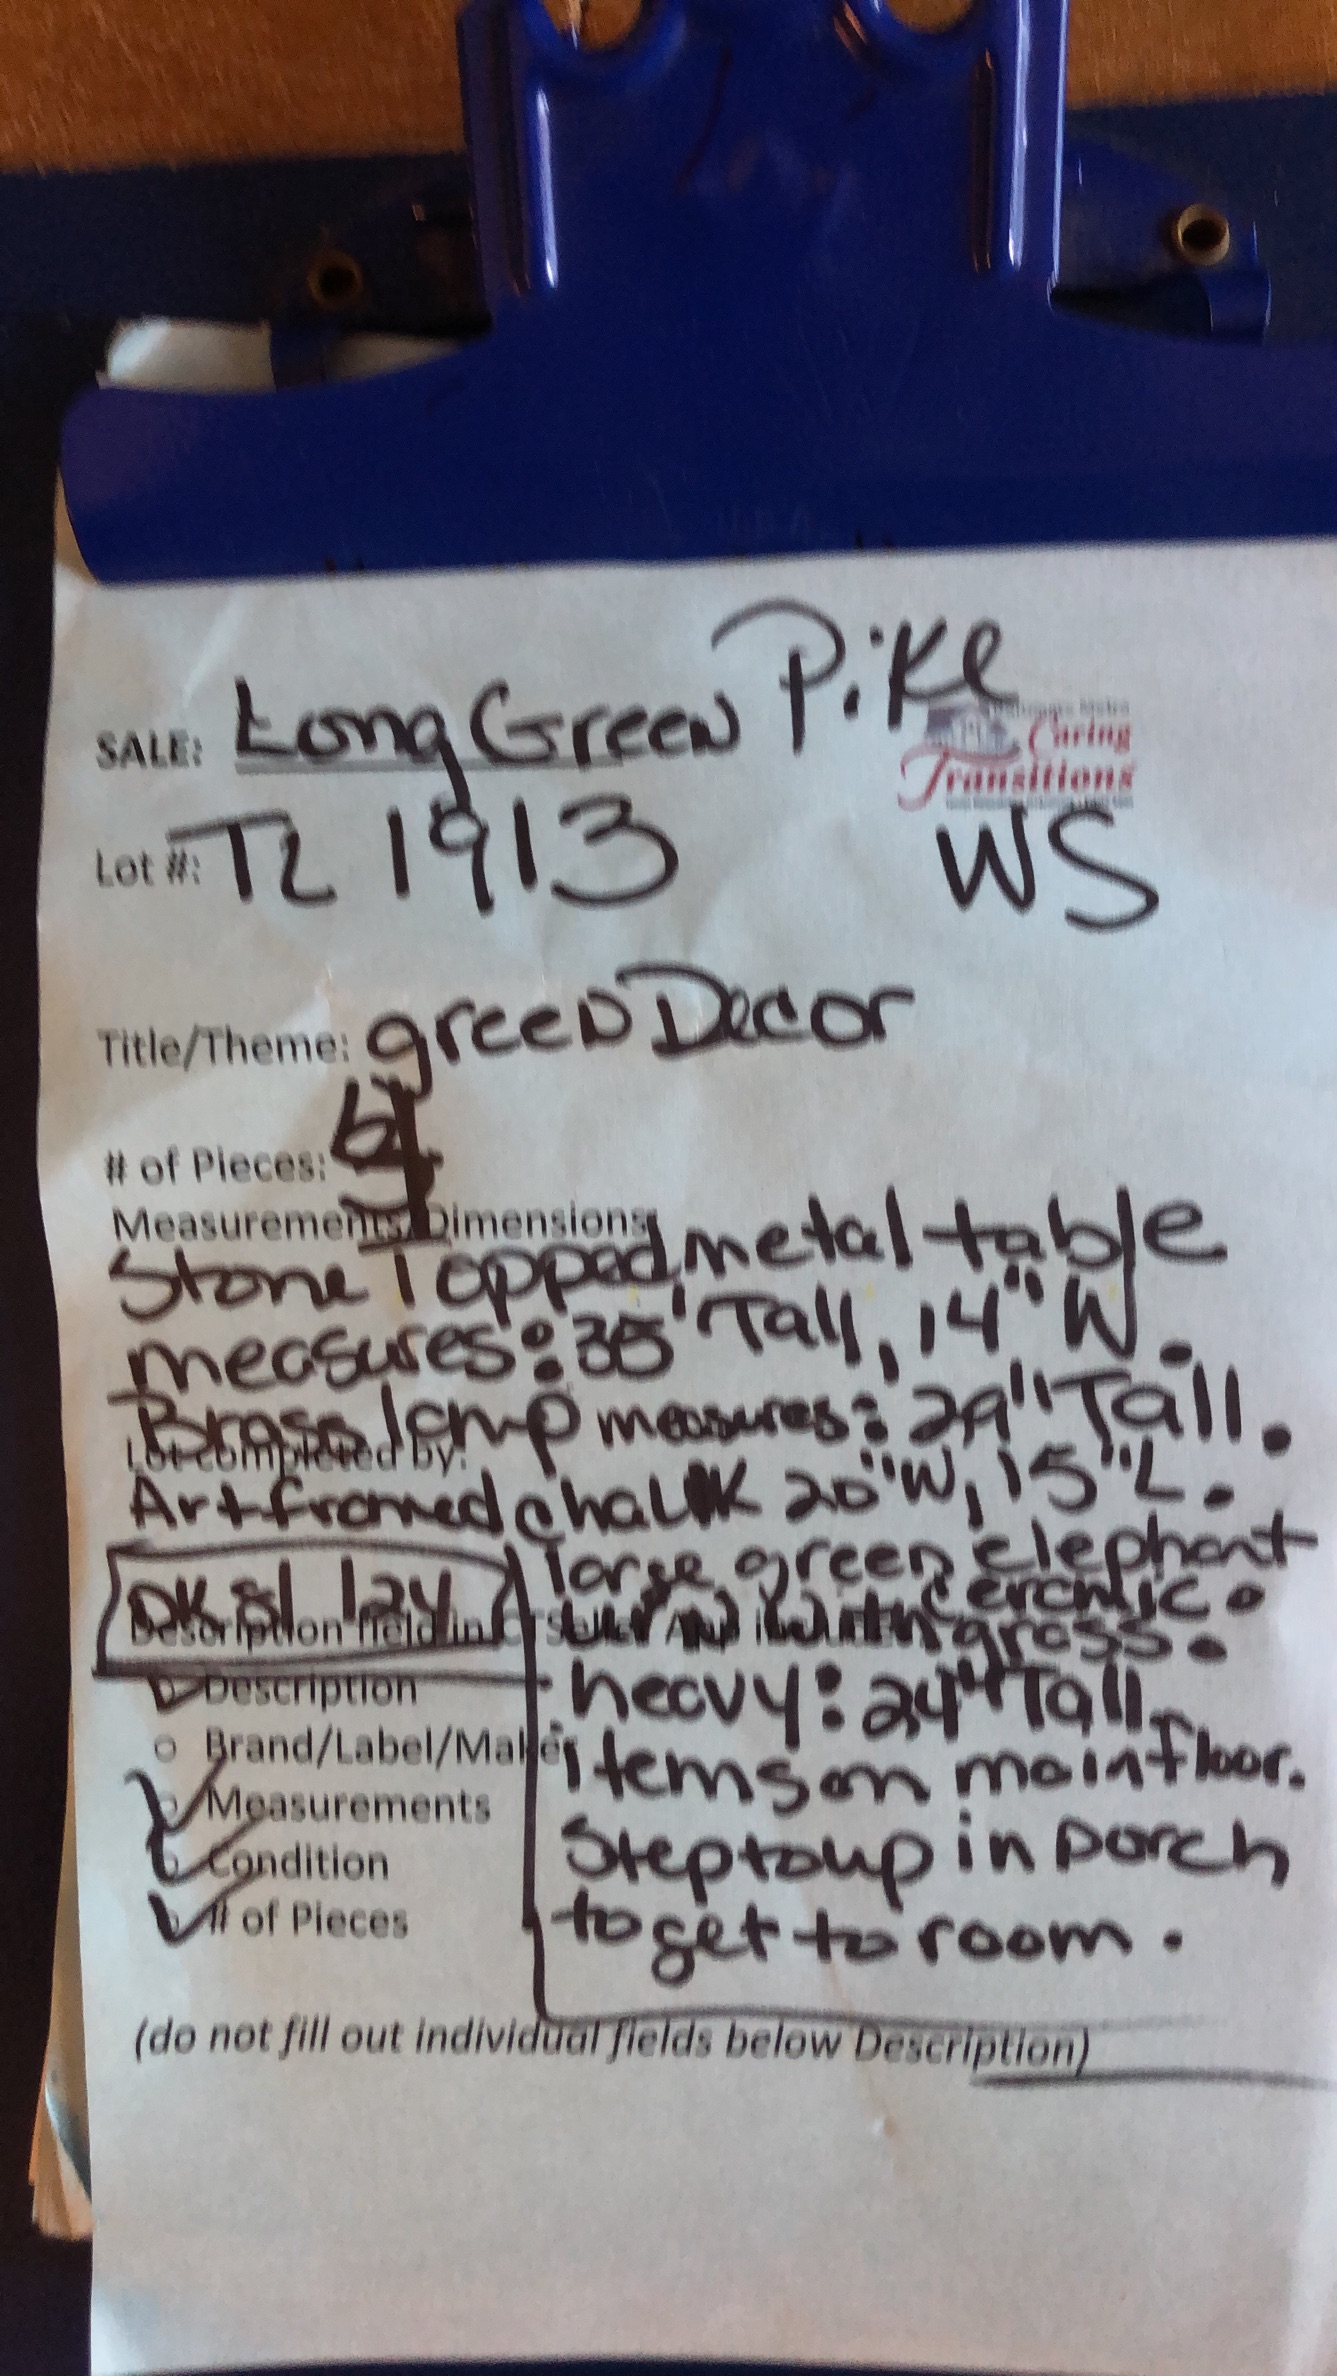 SALE: Long Green Pike
Caring
Transitions
Lot #: TL 1913 WS
Title/Theme: green Decor
# of Pieces:
Measurements/Dimensions
Stone Topped metal table
measures: Tall, 14" W.
Brass lamp measures: 29" Tall.
Lot completed by:
Art framed chalk 20"W, 15"L.
large green elephant
cermic.
Description field in with grass.
heavy: 24" Tall.
Description
items on main floor.
Brand/Label/Maker
Measurements
Step to up in porch
Condition
to get to room.
# of Pieces
(do not fill out individual fields below Description)